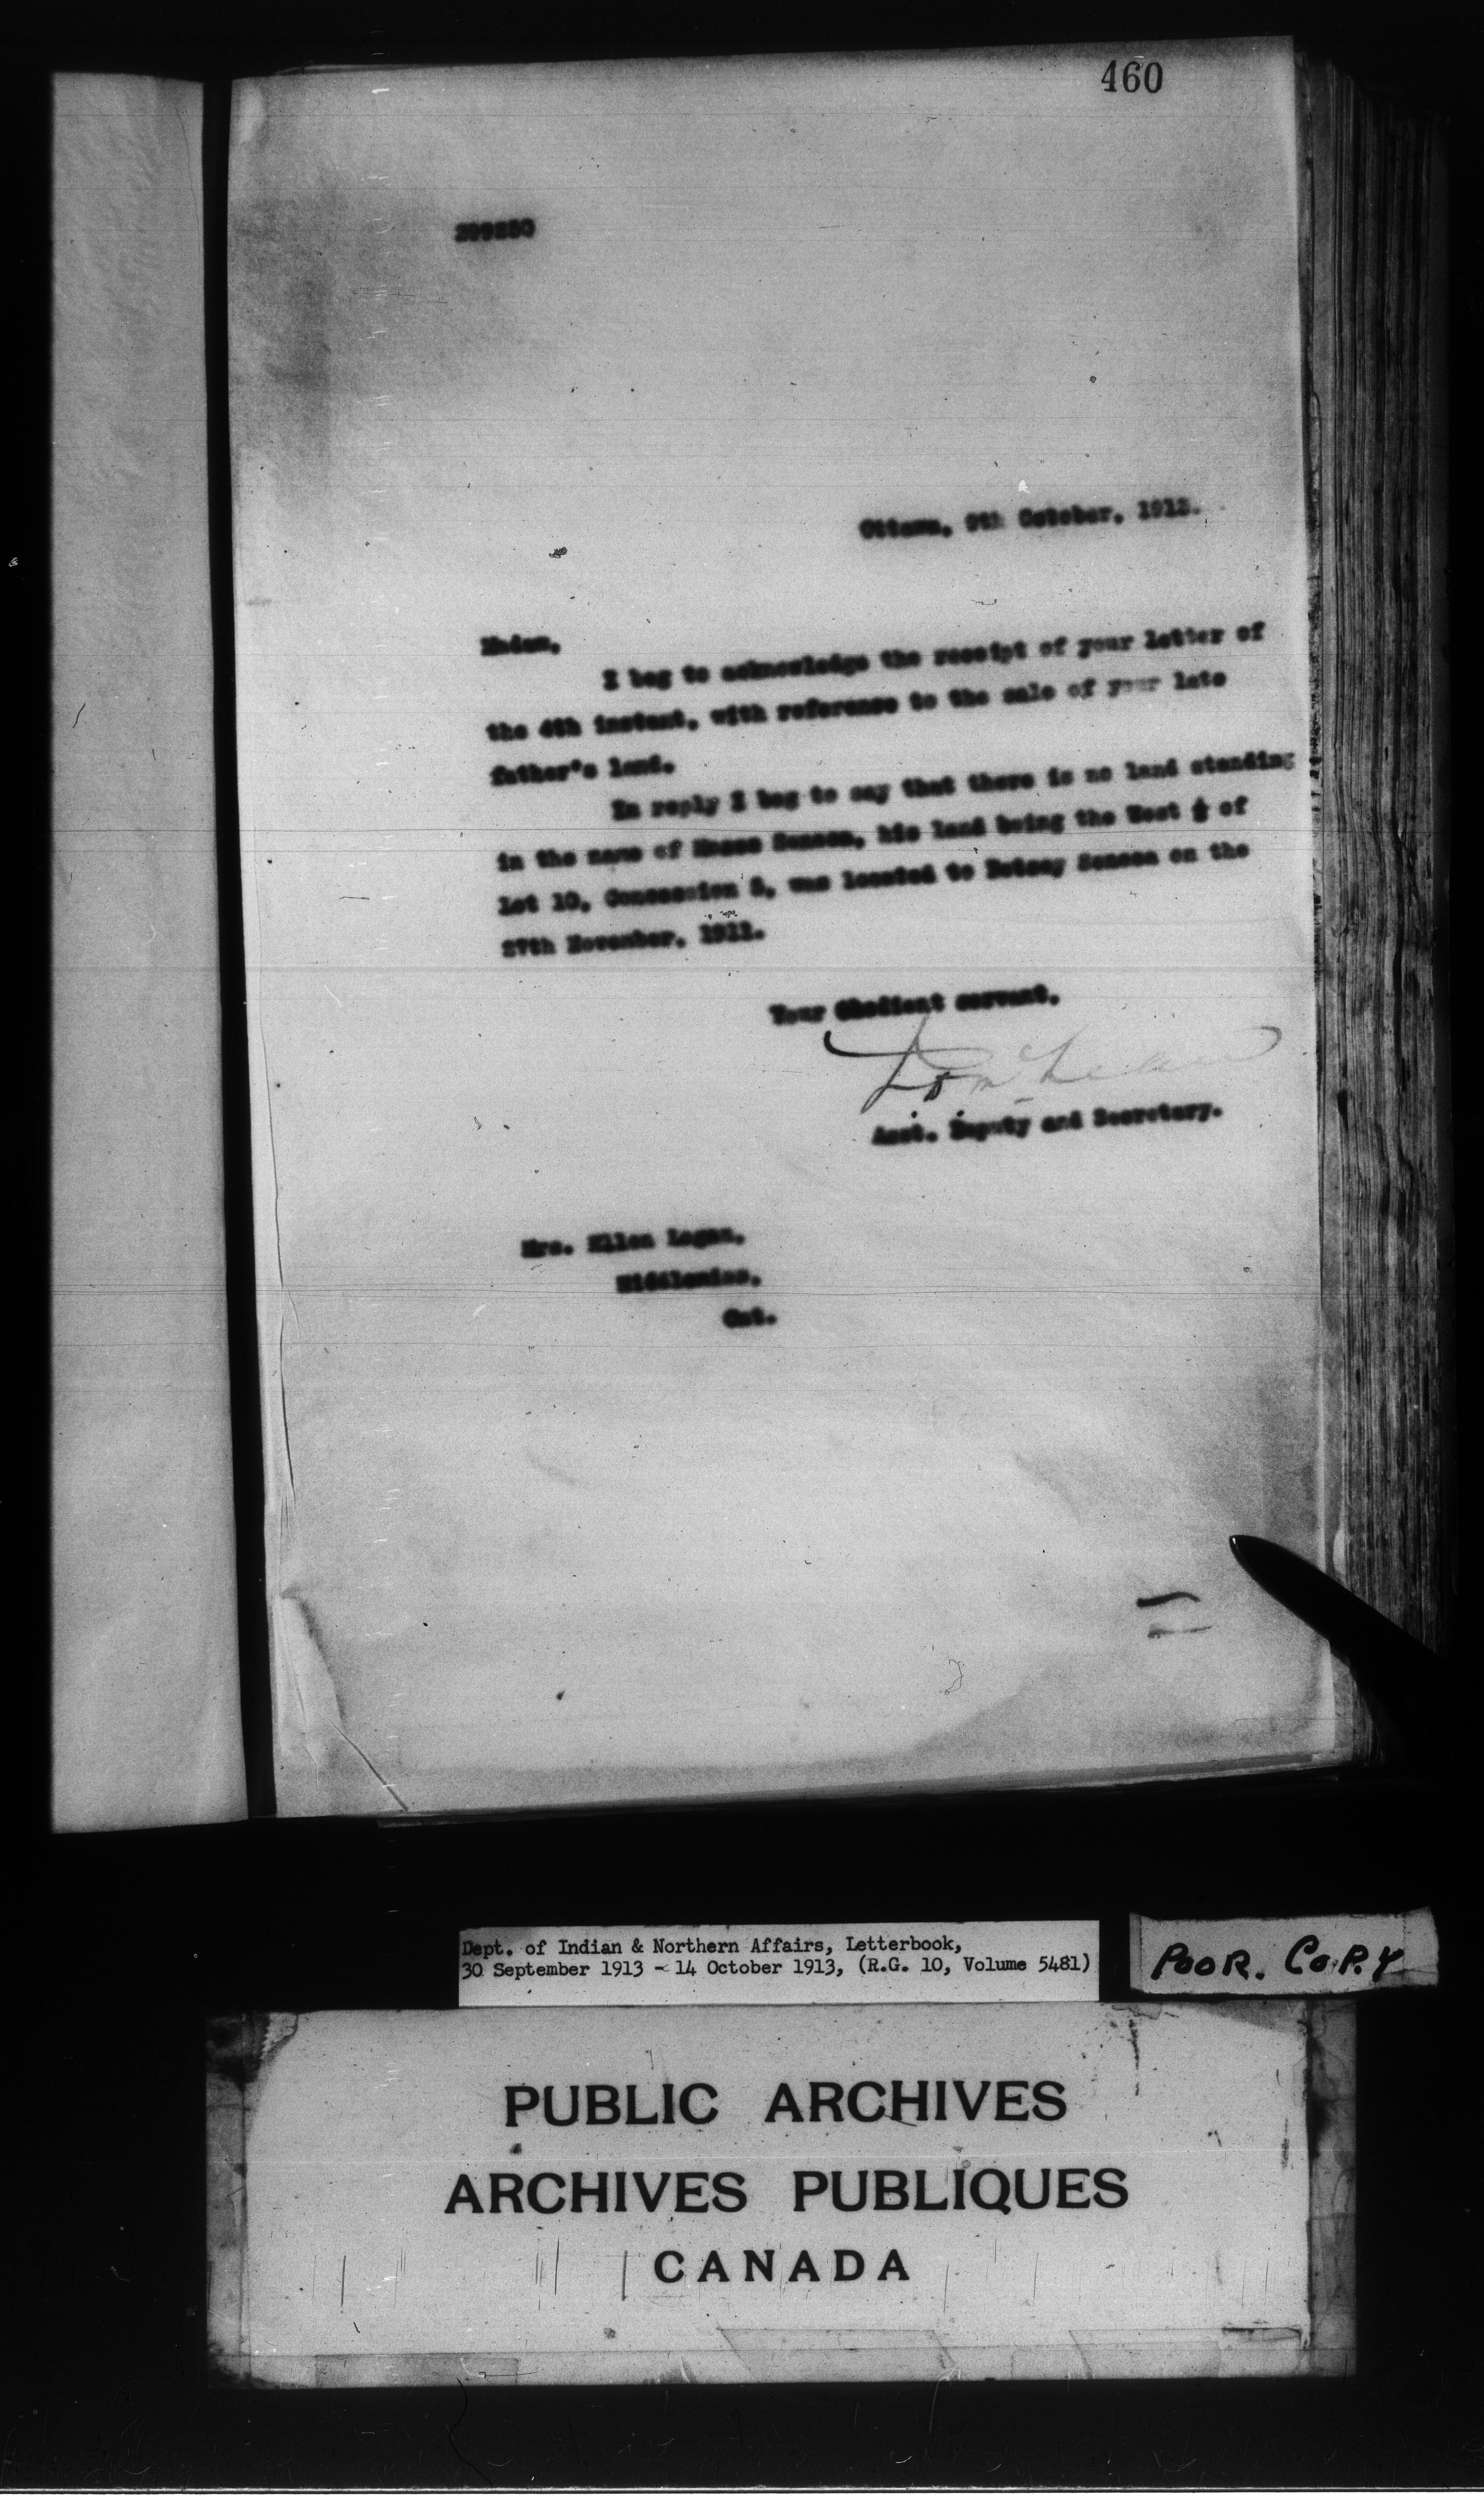 460
Ottawa, 9th October, 1913.
Madam,
I beg to acknowledge the receipt of your letter of
the 4th instant, with reference to the sale of your late
father's land.
In reply I beg to say that there is no land standing
in the name of Moses Seneca, his land being the West ½ of
Lot 10, Concession 5, was located to Betsey Seneca on the
27th November, 1911.
Your Obedient servant,
Asst. Deputy and Secretary.
Mrs. Ellen Logan,
Ont.
Dept. of Indian & Northern Affairs, Letterbook,
30 September 1913 - 14 October 1913, (R.G. 10, Volume 5481)
POOR. COPY
PUBLIC ARCHIVES
ARCHIVES PUBLIQUES
CANADA